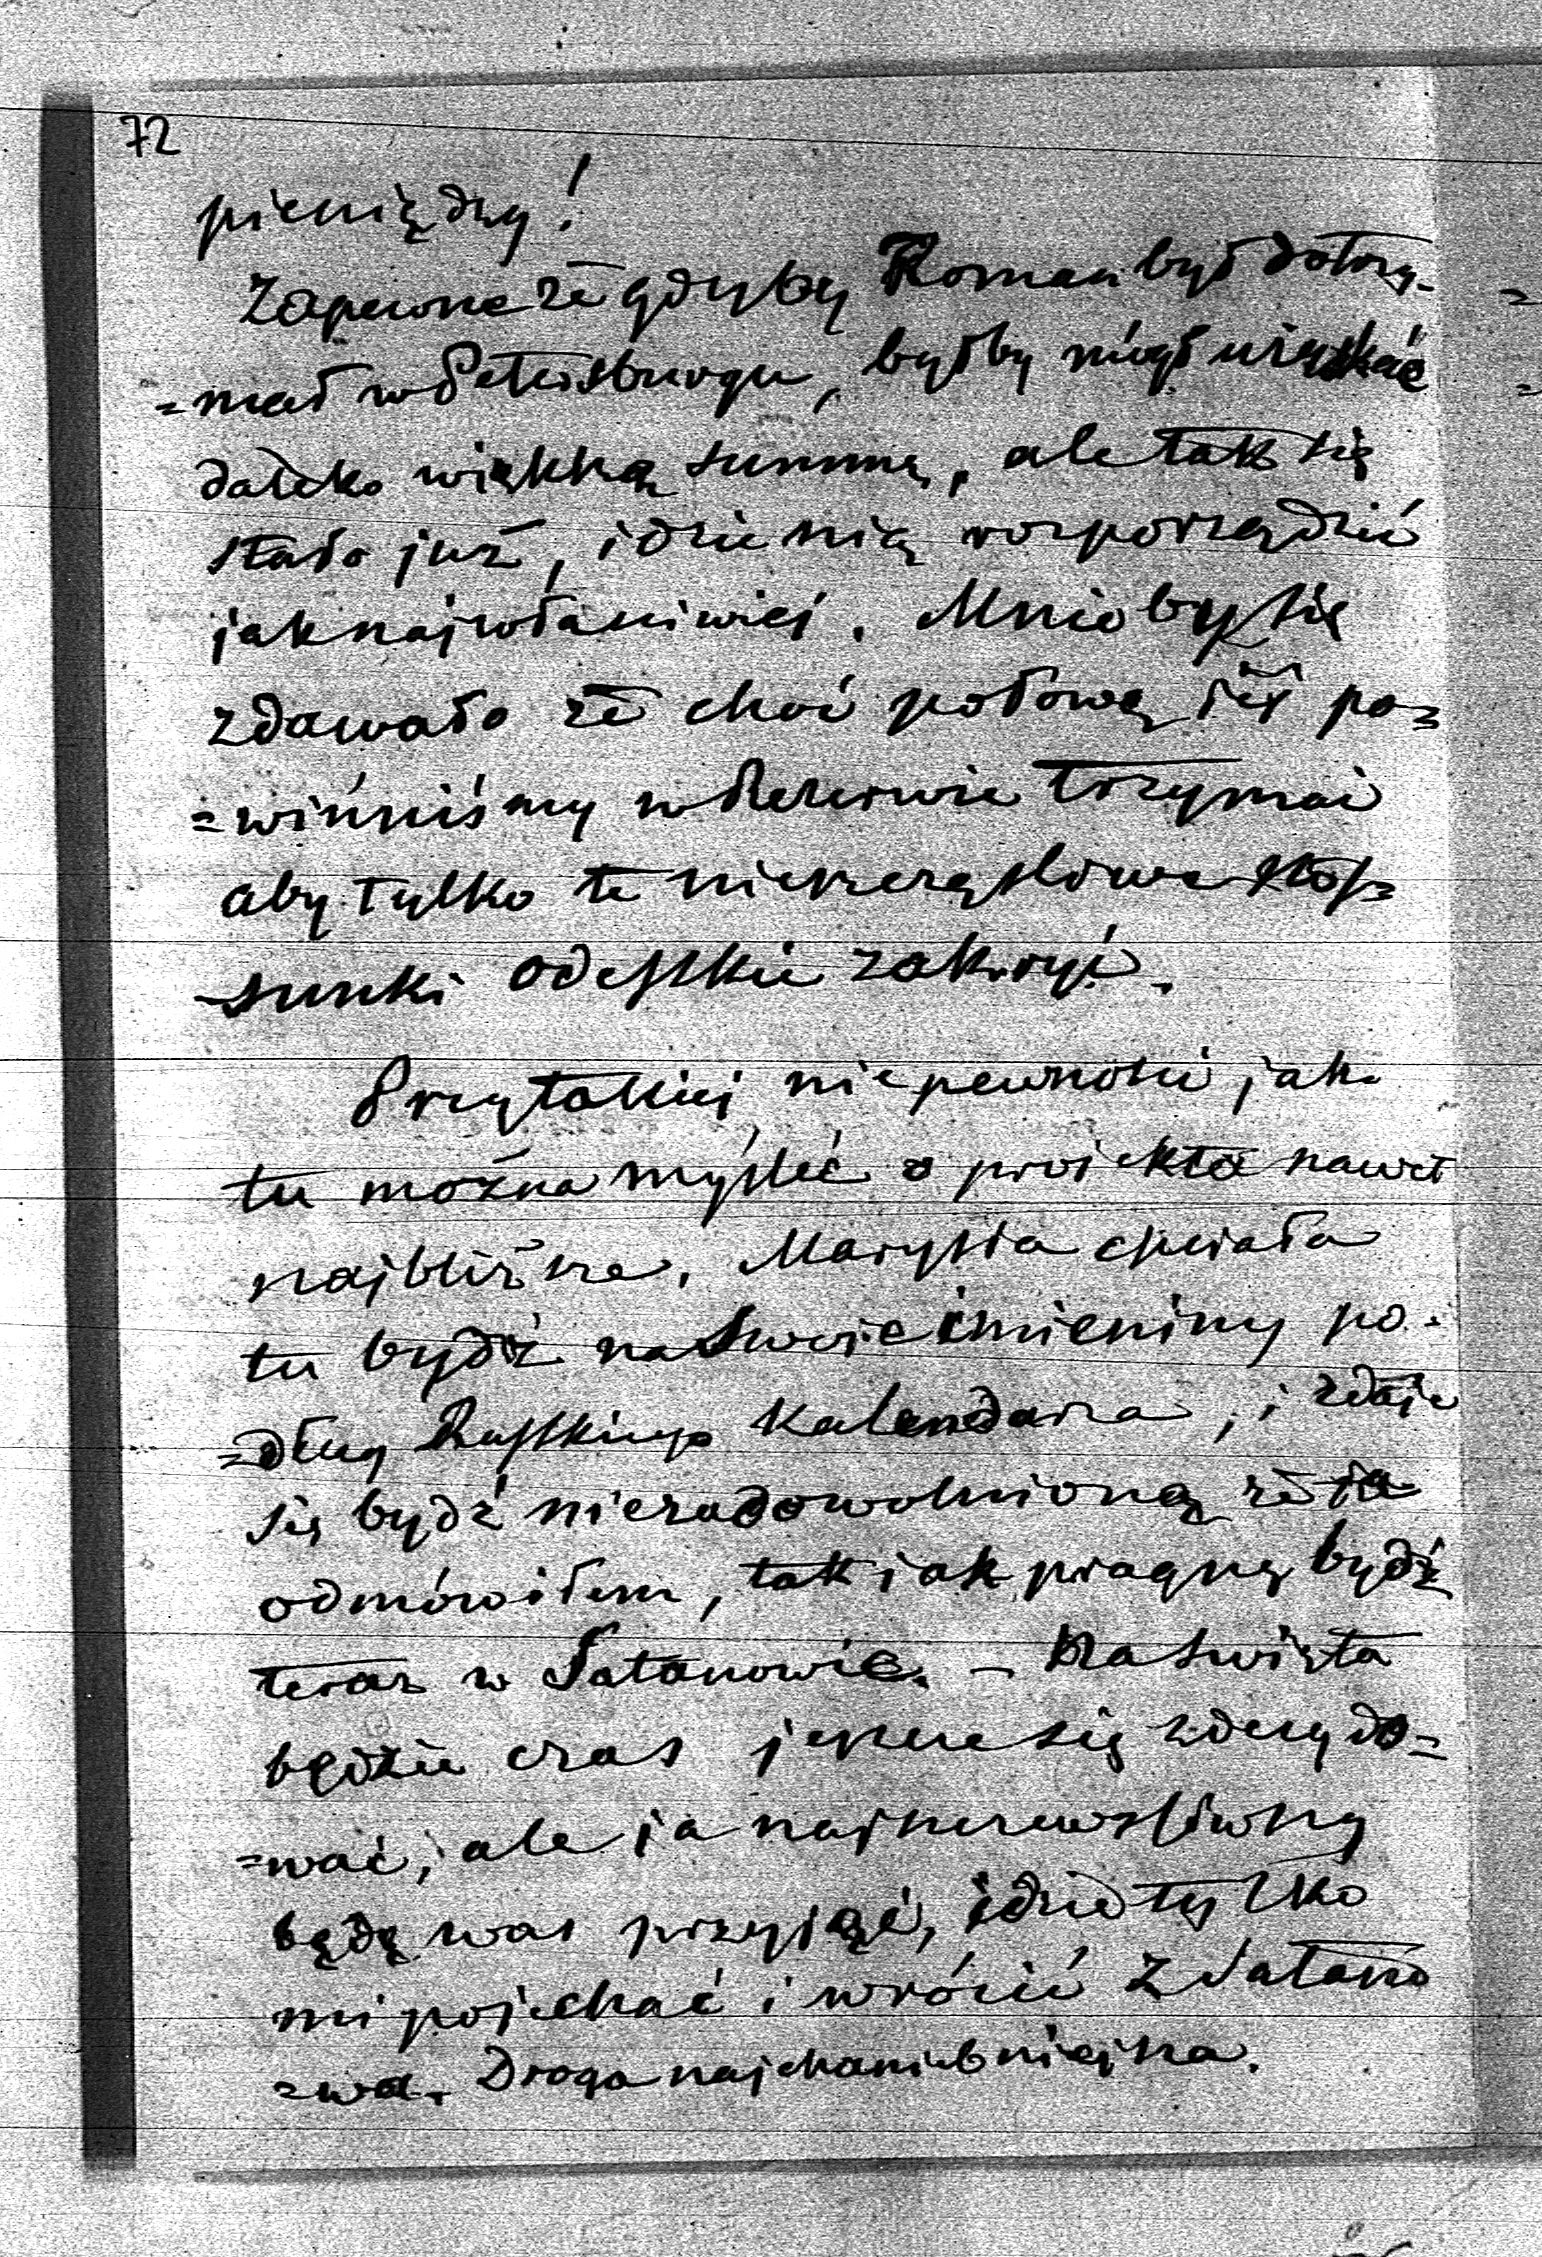 72
pieniędzy!
Zapewne że gdyby Roman był dotrzy-
=mał w Petersburgu, byłby mógł uzyskać
daleko większą summę, ale tak się
stało już, idzie nią rozporządzić
jaknajwłaściwiej. Mnie by się
zdawało że choć połowę jéj po=
=winniśmy w Rezerwie trzymać
aby tylko te nieszczęśliwe stos=
-sunki odesskie zakryć.
Przy takiej niepewności jak
tu można myśleć o projekta nawet
najbliższe. Marysia chciała
tu bydź na Swoje imieniny po-
=dług Russkiego Kalendarza, i zdaje
się bydź niezadowolnioną że ja
odmówiłem, tak jak pragnę bydź
teraz w Satanowie. - Na święta
będzie czas jeszcze się zdecydo=
=wać, ale ja najszczęśliwszy
będę was przyjąć, idzie tylko
mi pojechać i wrócić z Satano
=wa. Droga najchaniebniejsza.